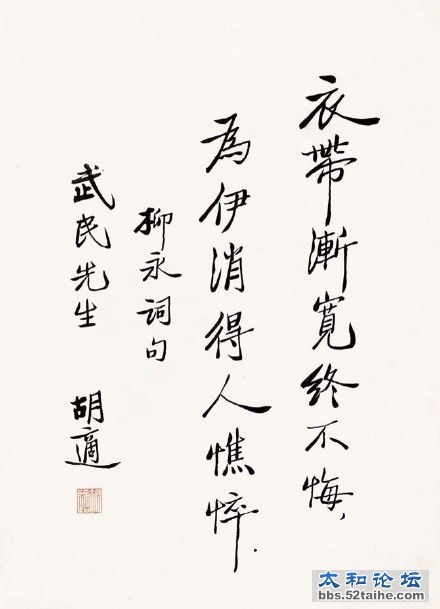 衣帶漸寬終不悔，
為伊消得人憔悴．
柳永词句
武民先生
胡適
太和论坛
bbs.52taihe.com